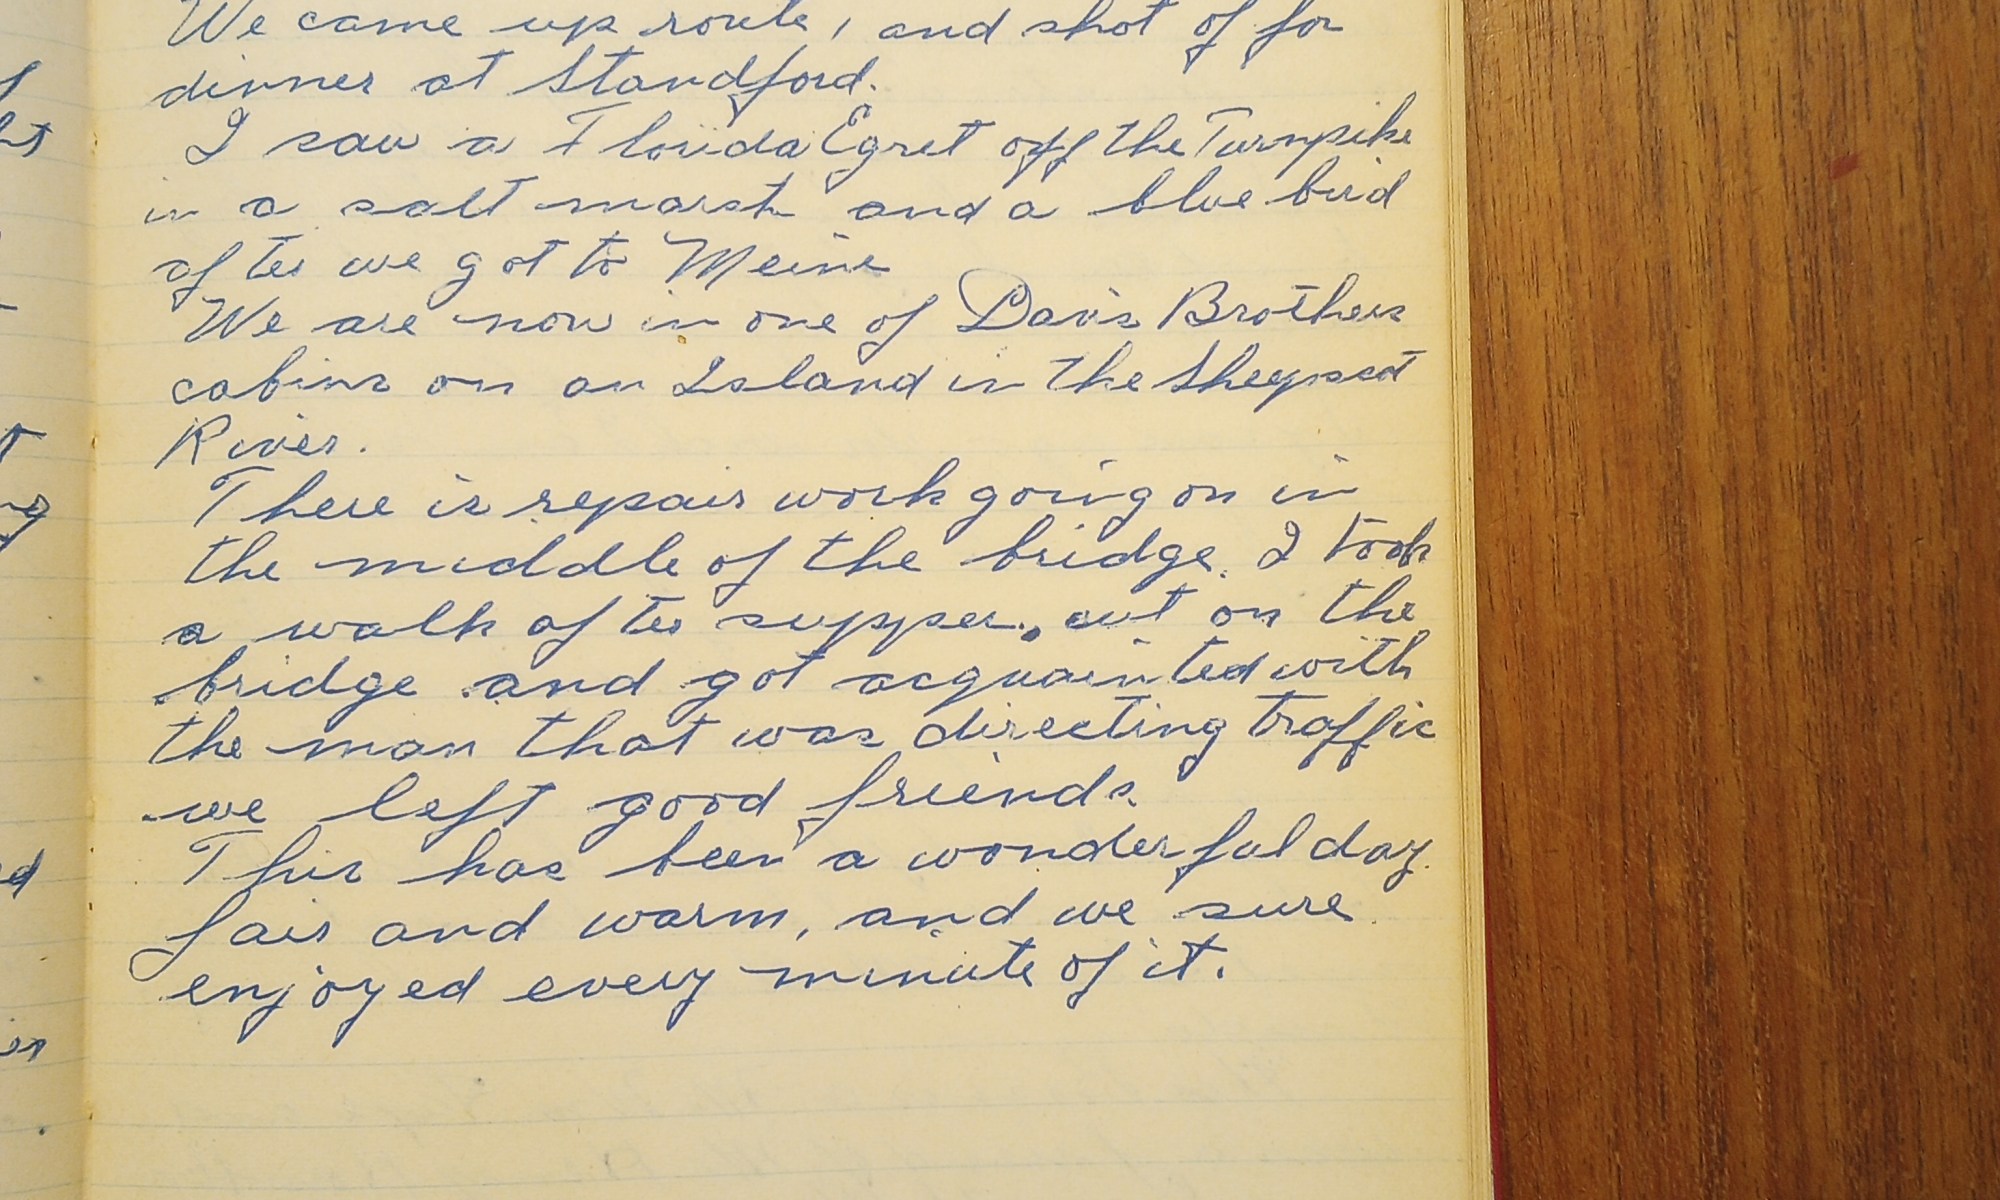 We came up route 1 and shot of for
dinner at Standford.
I saw a Florida Egret off the Turnpike
in a salt marsh and a blue bird
after we got to Meine
We are now in one of Davis Brothers
cabins on an Island in the Sheepscot
River.
There is repair work going on in
the middle of the bridge. I took
a walk after supper, out on the
bridge and got acquainted with
the man that was directing traffic
we left good friends.
This has been a wonderful day.
fair and warm, and we sure
enjoyed every minute of it.